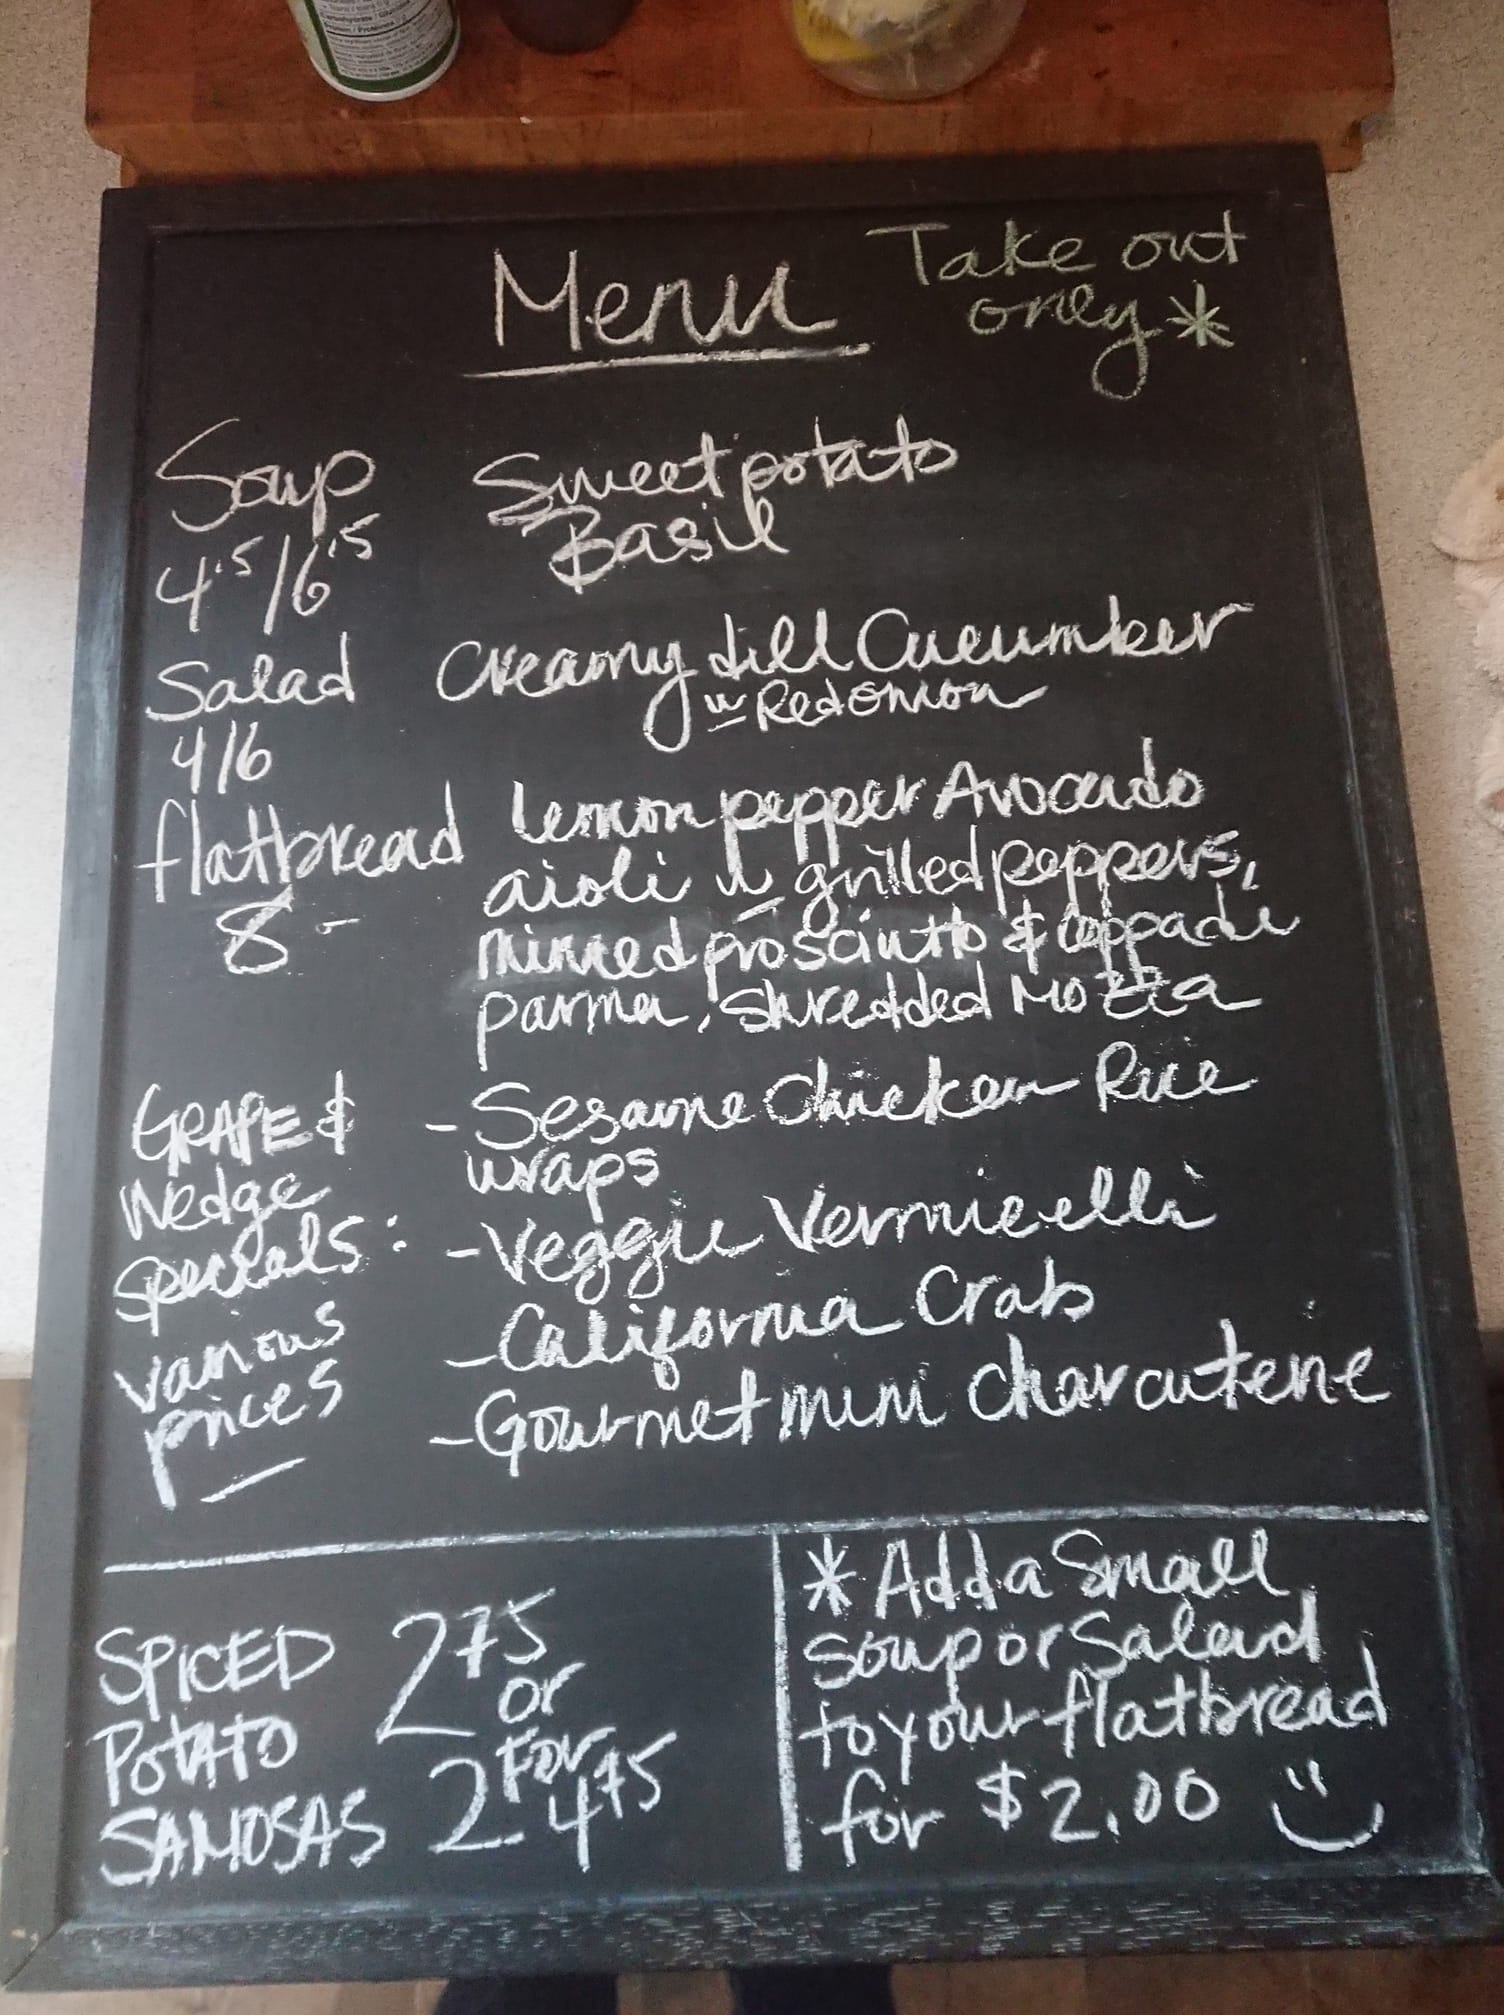 Menu
Take out
only *
Soup
4.5/6.5
Sweet potato
Basil
Salad
4/6
Creamy dill Cucumber
w Red onion
flatbread
8-
lemon pepper Avocado
aioli w grilled peppers,
minced prosciutto & coppa di
parma, shredded Mozza
GRAPE &
Wedge
Specials:
various
prices
- Sesame Chicken Rice
wraps
- Veggie Vermicelli
- California Crab
- Gourmet mini charcuterie
SPICED
POTATO
SAMOSAS
2 75
or
2 FOR
4 75
* Add a Small
soup or Salad
to your flatbread
for $2.00